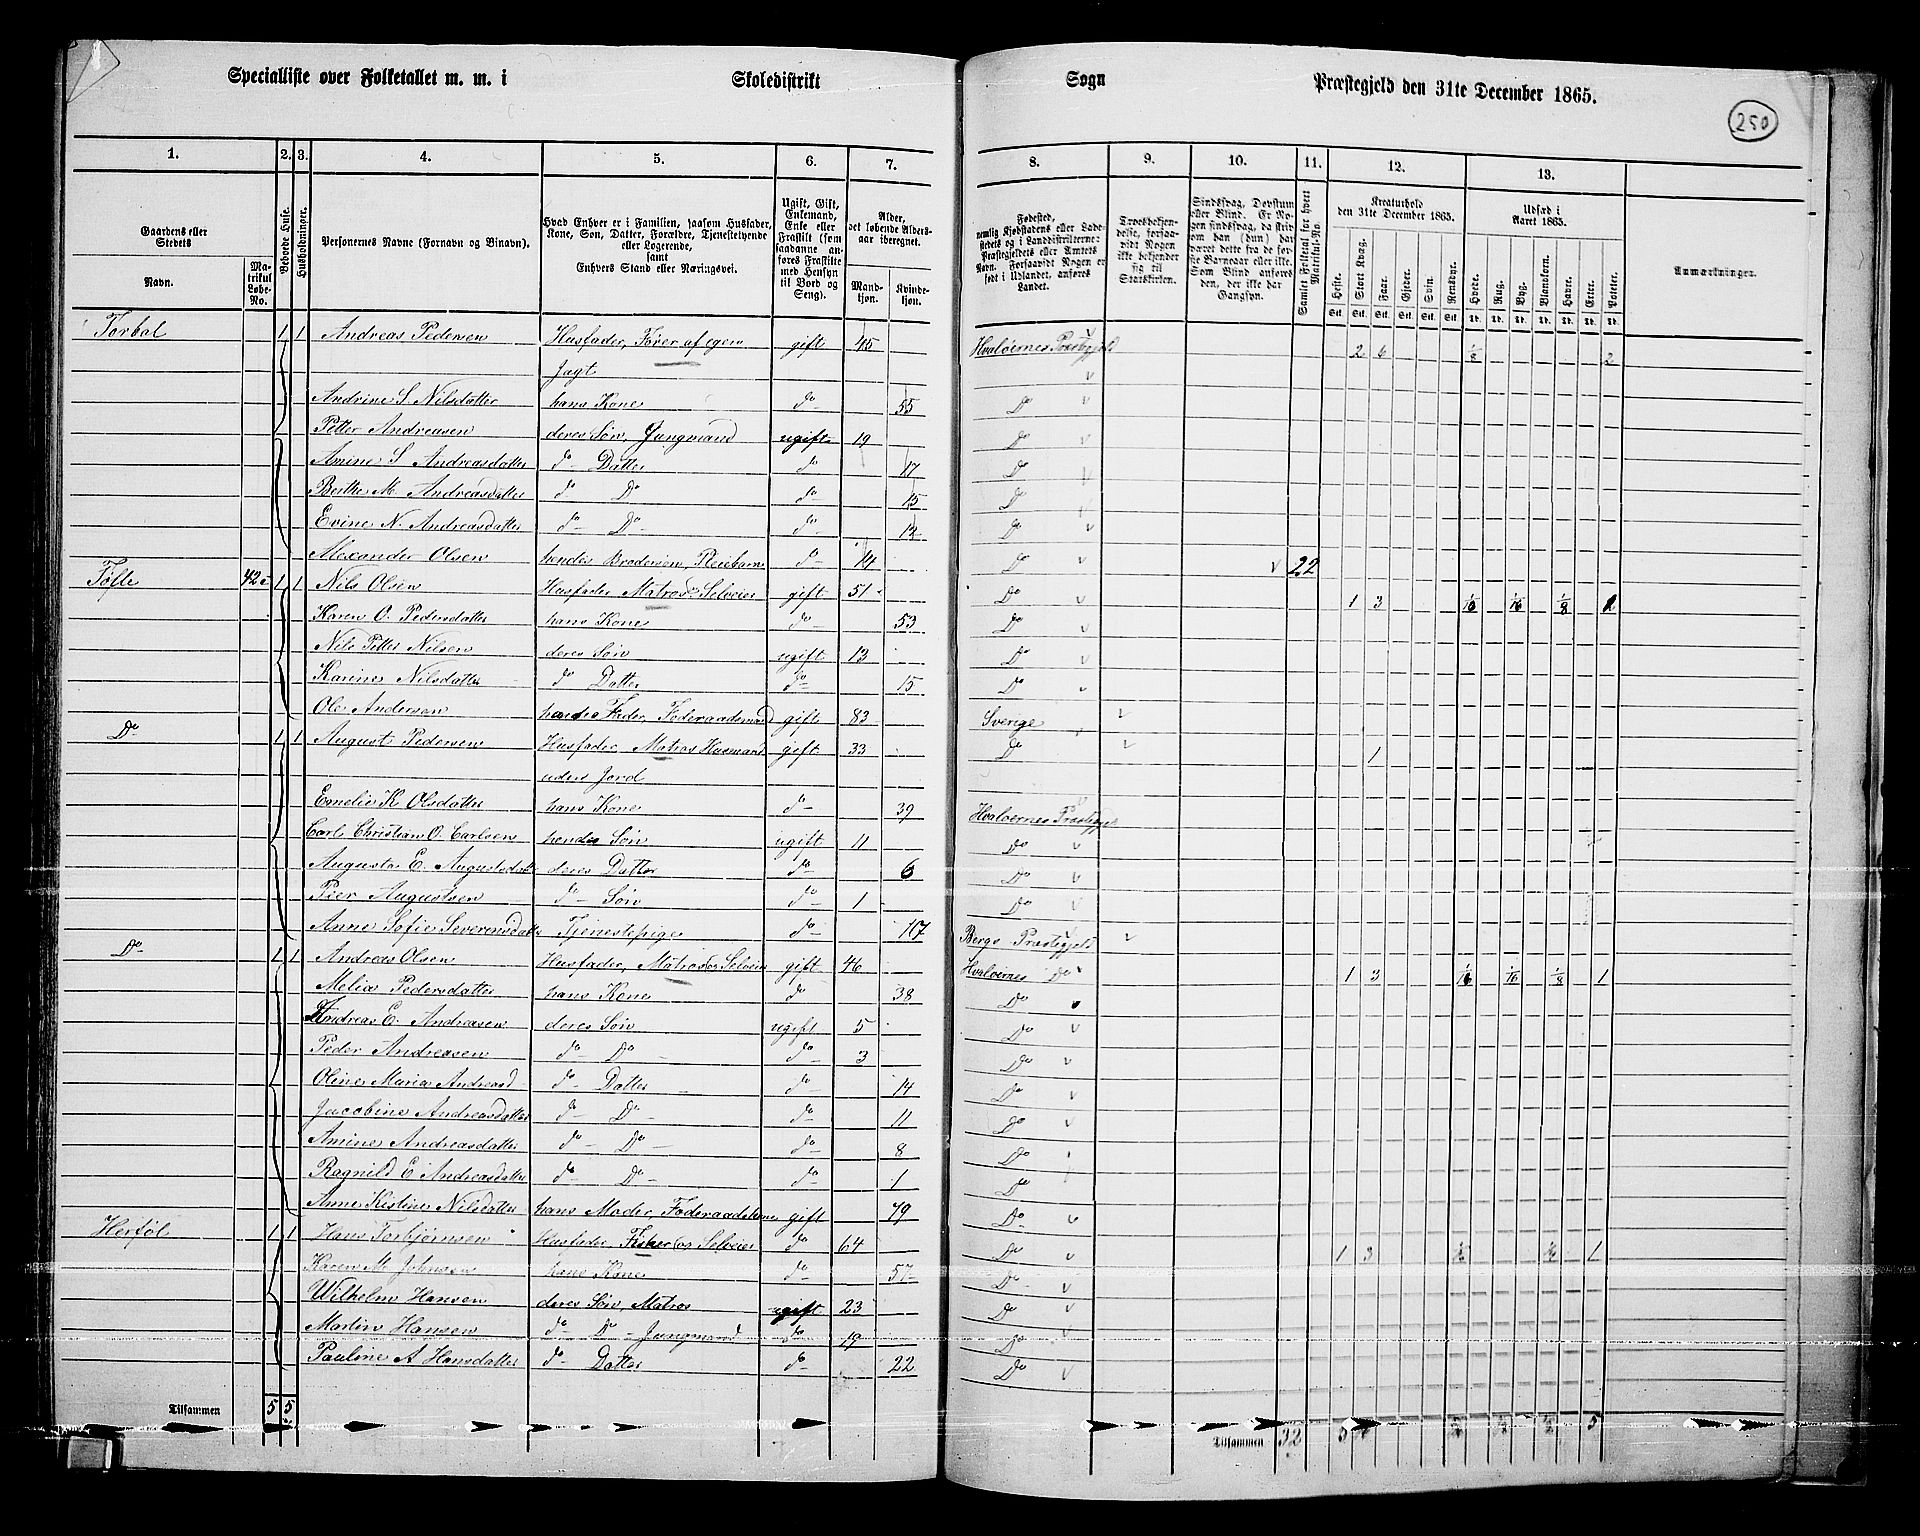 Specialliste over Folketallet m. m. i Skoledistrikt Sogn Præstegjeld den 31te December 1865.
250
1. 2. 3. 4. 5. 6. 7. 8. 9. 10. 11. 12. 13.
Gaardens eller Stedets
Navn. Matrikul Løbe-No.
Beboede Huse.
Husholdninger.
Personernes Navne (Fornavn og Binavn).
Hvad Enhver er i Familien, saasom Husfader, Kone, Søn, Datter, Forældre, Tjenestetyende eller Logerende, samt Enhvers Stand eller Næringsvei.
Ugift, Gift, Enkemand, Enke eller Fraskilt (som saadanne anføres Fraskilte med Hensyn til Bord og Seng).
Alder, det løbende Alders-aar iberegnet.
Mandkjøn. Kvindekjøn.
Fødested, nemlig Kjøbstadens eller Ladestedets og i Landdistrikterne: Præstegjeldets eller Amtets Navn. Forsaavidt Nogen er født i Udlandet, anføres Landet.
Troesbekjendelse, forsaavidt Nogen ikke bekjender sig til Statskirken.
Sindssvag, Døvstum eller Blind. Er Nogen sindssvag, da skrives om han (hun) har været dette fra de første Barneaar eller ikke. Som Blind anføres den, der ikke har Gangsyn.
Samlet Folketal for hvert Matrikul-No.
Kreaturhold den 31te December 1865.
Heste. Stort Kvæg. Faar. Gjeder. Svin. Rensdyr.
Udsæd i Aaret 1865.
Hvede. Rug. Byg. Blandkorn. Havre. Erter. Poteter.
Anmærkninger.
Torbal 1 1 Andreas Pedersen Husfader, Fører af egen gift 45 Hvaløernes Præstegjeld 2 6 1/8 2
Jagt
Andrine S. Nilsdatter hans Kone do 55 Do
Petter Andreasen deres Søn, Jungmand ugift 19 Do
Amine S Andreasdatter do Datter do 17 Do
Berthe M. Andreasdatter do Do do 15 Do
Evine N. Andreasdatter do Do do 12 Do
Alexander Olsen hendes Brodersøn, Pleiebarn do 14 Do 22
Tofte 42 1 1 Nils Olsen Husfader, Matros Selveier gift 51 Do 1 3 1/16 1/16 1/8
Karen O. Pedersdatter hans Kone do 53 Do
Nils Petter Nilsen deres Søn ugift 13 Do
Karine Nilsdatter do Datter do 15 Do
Ole Andersen Fader, Føderaadsmand gift 83 Sverige
Do 1 1 August Pedersen Husfader, Matros Husmand gift 33 Do 1
uden Jord
Emelie K. Olsdatter hans Kone do 39 Hvaløernes Præstegjeld
Carl Christian O. Carlsen hendes Søn ugift 11 Do
Augusta E. Augustsdatter deres Datter do 6 Do
Peer Augustsen do Søn do 1 Do
Anne Sofie Severinsdatter Tjenestepige do 17 Bergs Præstegjeld
Do 1 1 Andreas Olsen Husfader, Matros og Selveier gift 46 Hvaløernes Do 1 3 1/16 1/16 1/8 1
Melia Pedersdatter hans Kone do 38 Do
Andreas E. Andreasen deres Søn ugift 5 Do
Peder Andreasen do Do do 3 Do
Oline Maria Andreasd do Datter do 14 Do
Jacobine Andreasdatter do Do do 11 Do
Amine Andreasdatter do Do do 8 Do
Ragnild E. Andreasdatter do Do do 1 Do
Anne Kistine Nilsdatter hans Moder, Føderaadskone gift 79 Do
Herføl 1 1 Hans Torbjørnsen Husfader, Fisker og Selveier do 64 Do 1 3 1
Karen M. Johnsen hans Kone do 57 Do
Wilhelm Hansen deres Søn, Matros ugift 23 Do
Martin Hansen do Do Jungmand do 19 Do
Pauline A Hansdatter do Datter do 22 Do
Tilsammen 5 5 Tilsammen 32 5